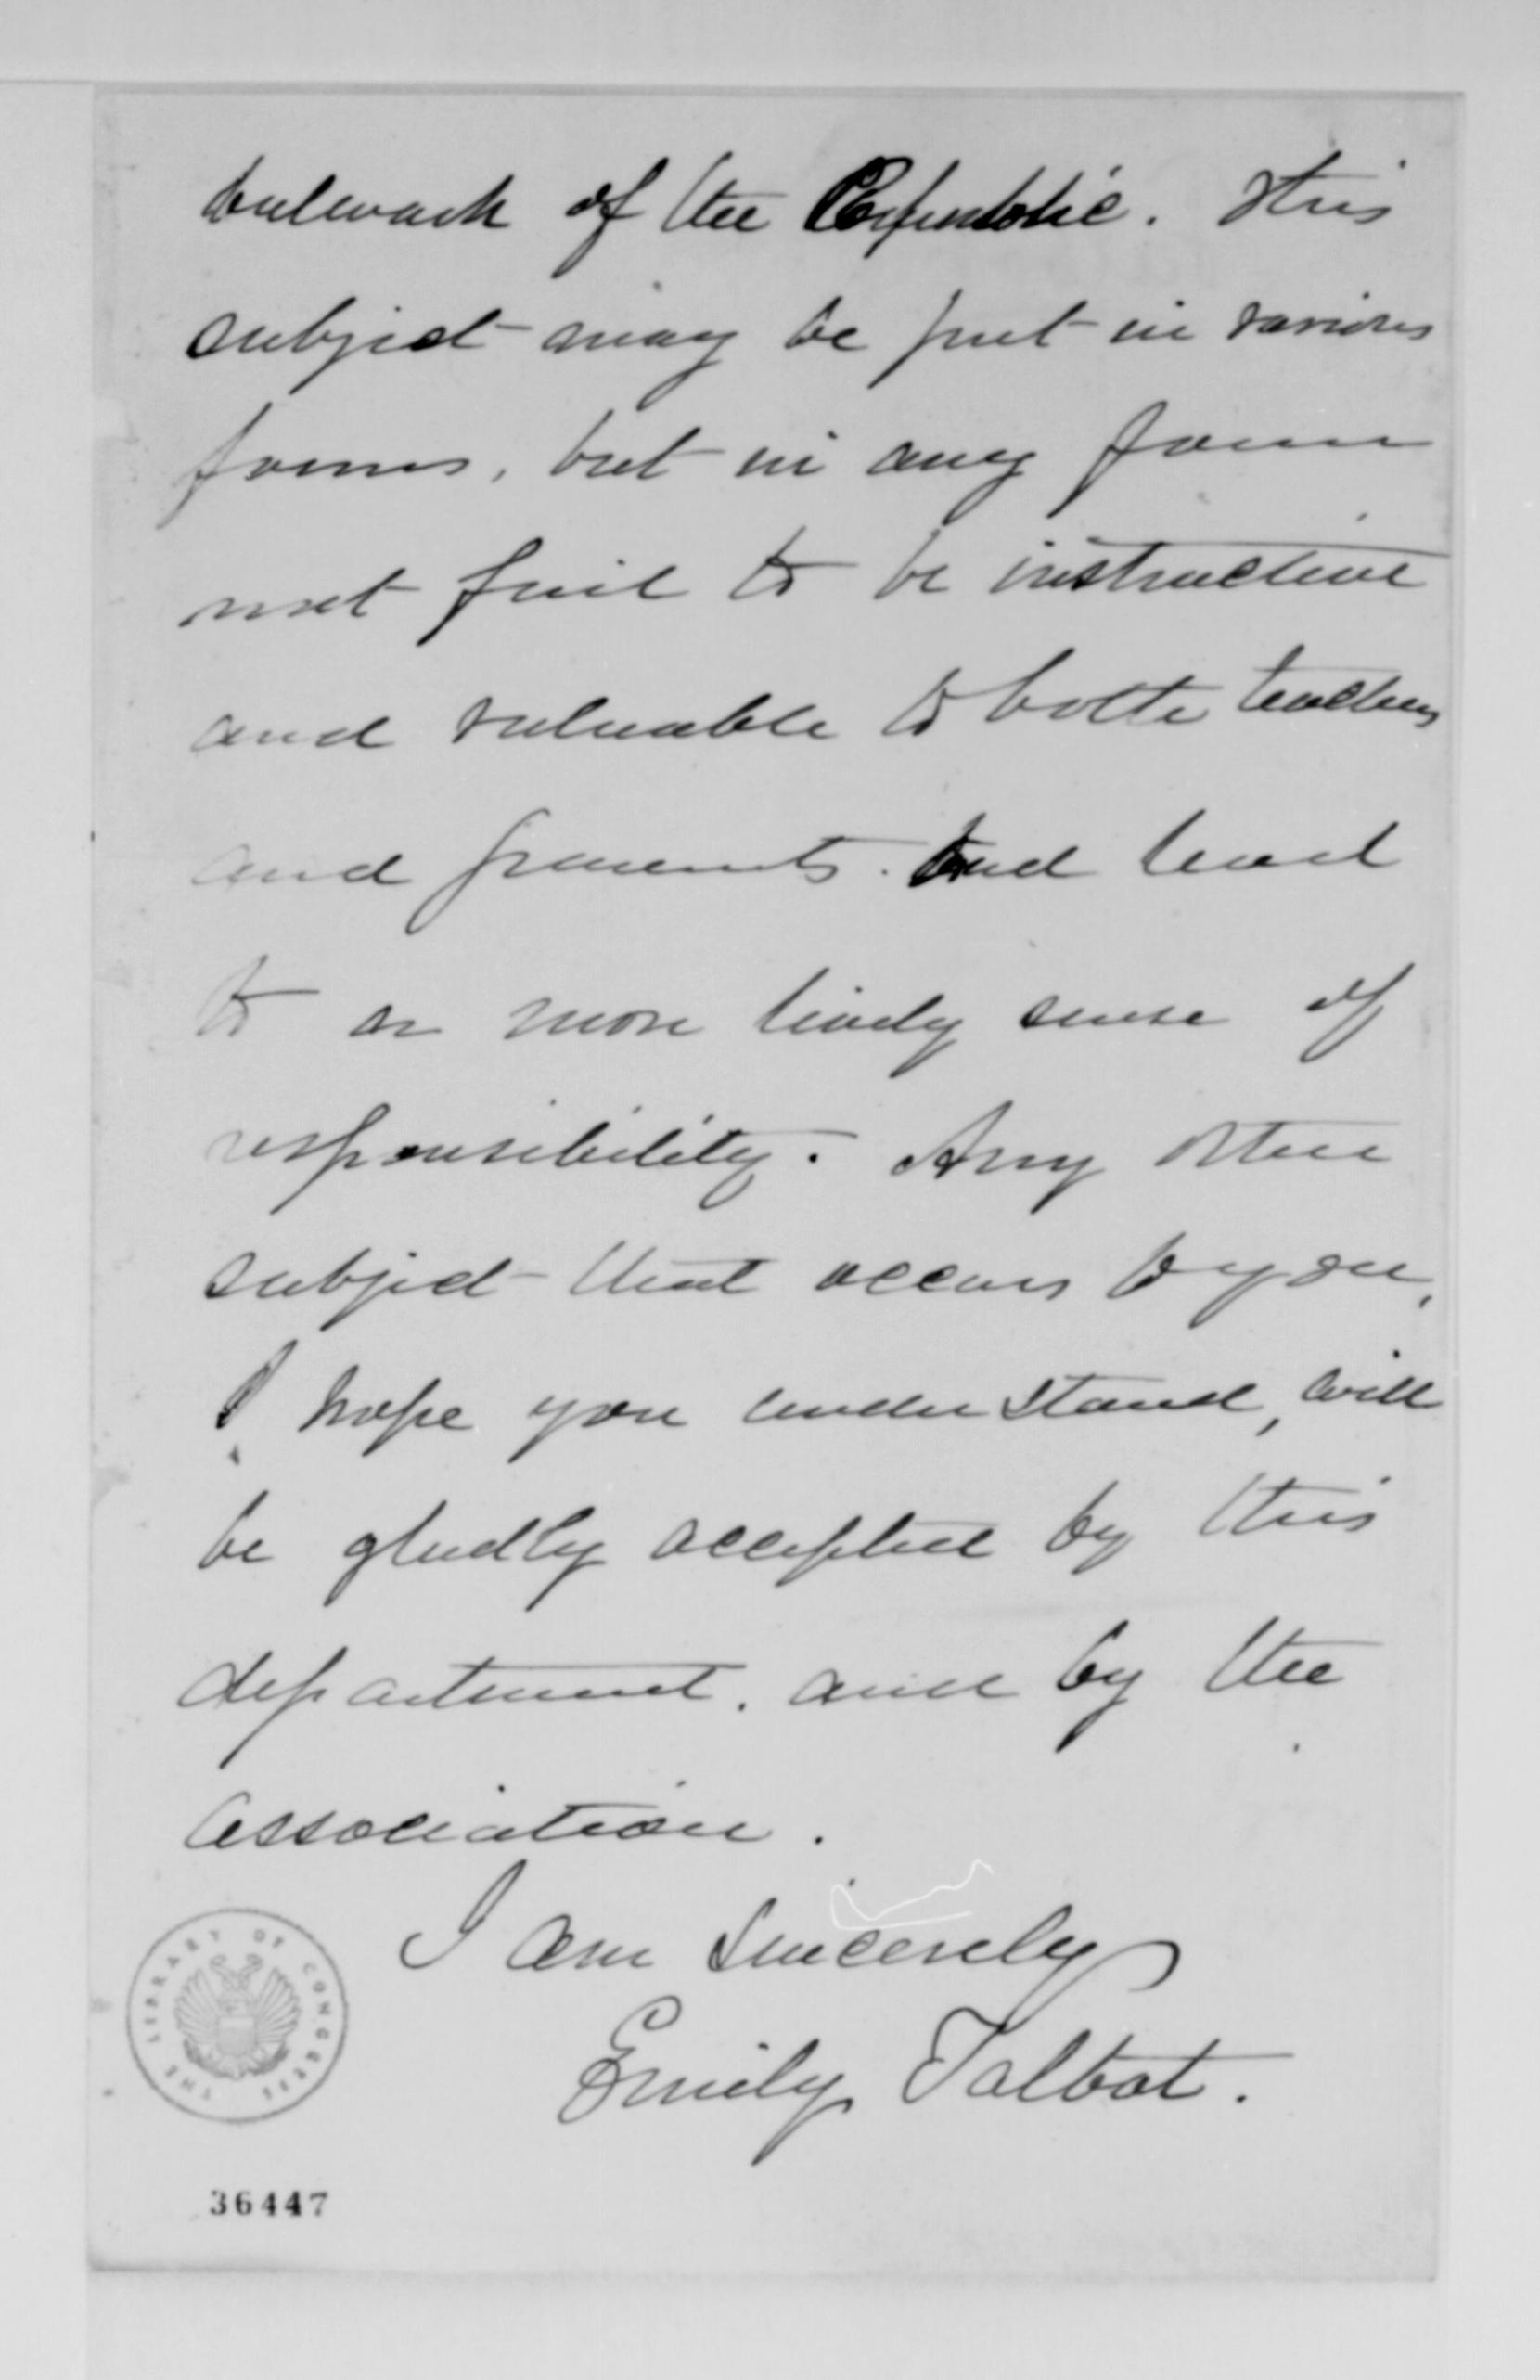 bulwark of the Republic. This
subject may be put in various
forms, but in any form
not fail to be instructive
and valuable to both teachers
and parents. and lead
to a more lively sense of
responsibility. Any other
subject that occurs to you,
I hope you understand, will
be gladly accepted by this
department. and by the
Association.
I am sincerely
Emily Talbot.
THE LIBRARY OF CONGRESS
36447